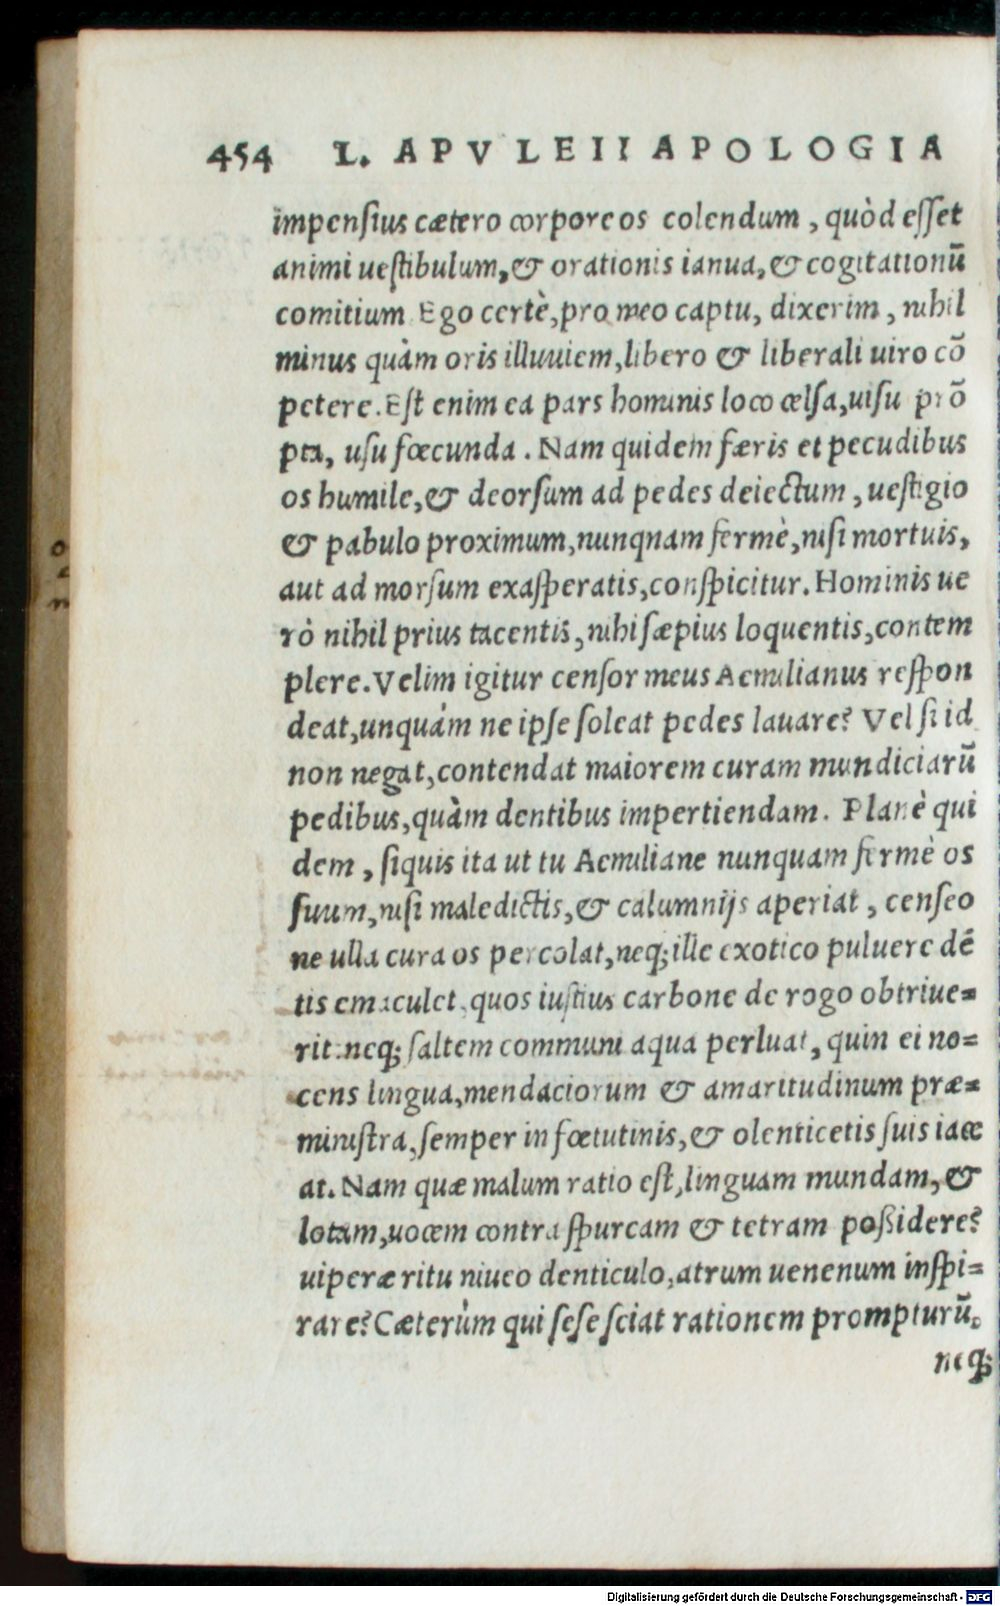 454 L. APVLEII APOLOGIA
impensius cætero corpore os colendum, quòd esset
animi uestibulum, & orationis ianua, & cogitationũ
comitium Ego certè, pro meo captu, dixerim, nihil
minus quàm oris illuuiem, libero & liberali uiro cõ
petere. Est enim ea pars hominis loco celsa, uisu prõ
pta, usu fœcunda. Nam quidem færis et pecudibus
os humile, & deorsum ad pedes deiectum, uestigio
& pabulo proximum, nunqnam fermè, nisi mortuis,
aut ad morsum exasperatis, conspicitur. Hominis ue
rò nihil prius tacentis, nihi sæpius loquentis, contem
plere. Velim igitur censor meus Aemilianus respon
deat, unquám ne ipse soleat pedes lauare? Vel si id
non negat, contendat maiorem curam mundiciarũ
pedibus, quàm dentibus impertiendam. Planè qui
dem, siquis ita ut tu Aemiliane nunquam fermè os
suum, nisi maledictis, & calumnijs aperiat, censeo
ne ulla cura os percolat, neq; ille exotico puluere dẽ
tis emaculet, quos iustius carbone de rogo obtriue=
rit: neq; saltem communi aqua perluat, quin ei no=
cens lingua, mendaciorum & amaritudinum præ=
ministra, semper in fœtutinis, & olenticetis suis iace
at. Nam quæ malum ratio est, linguam mundam, &
lotam, uocem contra spurcam & tetram poßidere?
uiperæ ritu niueo denticulo, atrum uenenum inspi=
rare? Cæterùm qui sese sciat rationem prompturũ,
neq;
o
n
Digitalisierung gefördert durch die Deutsche Forschungsgemeinschaft - DFG